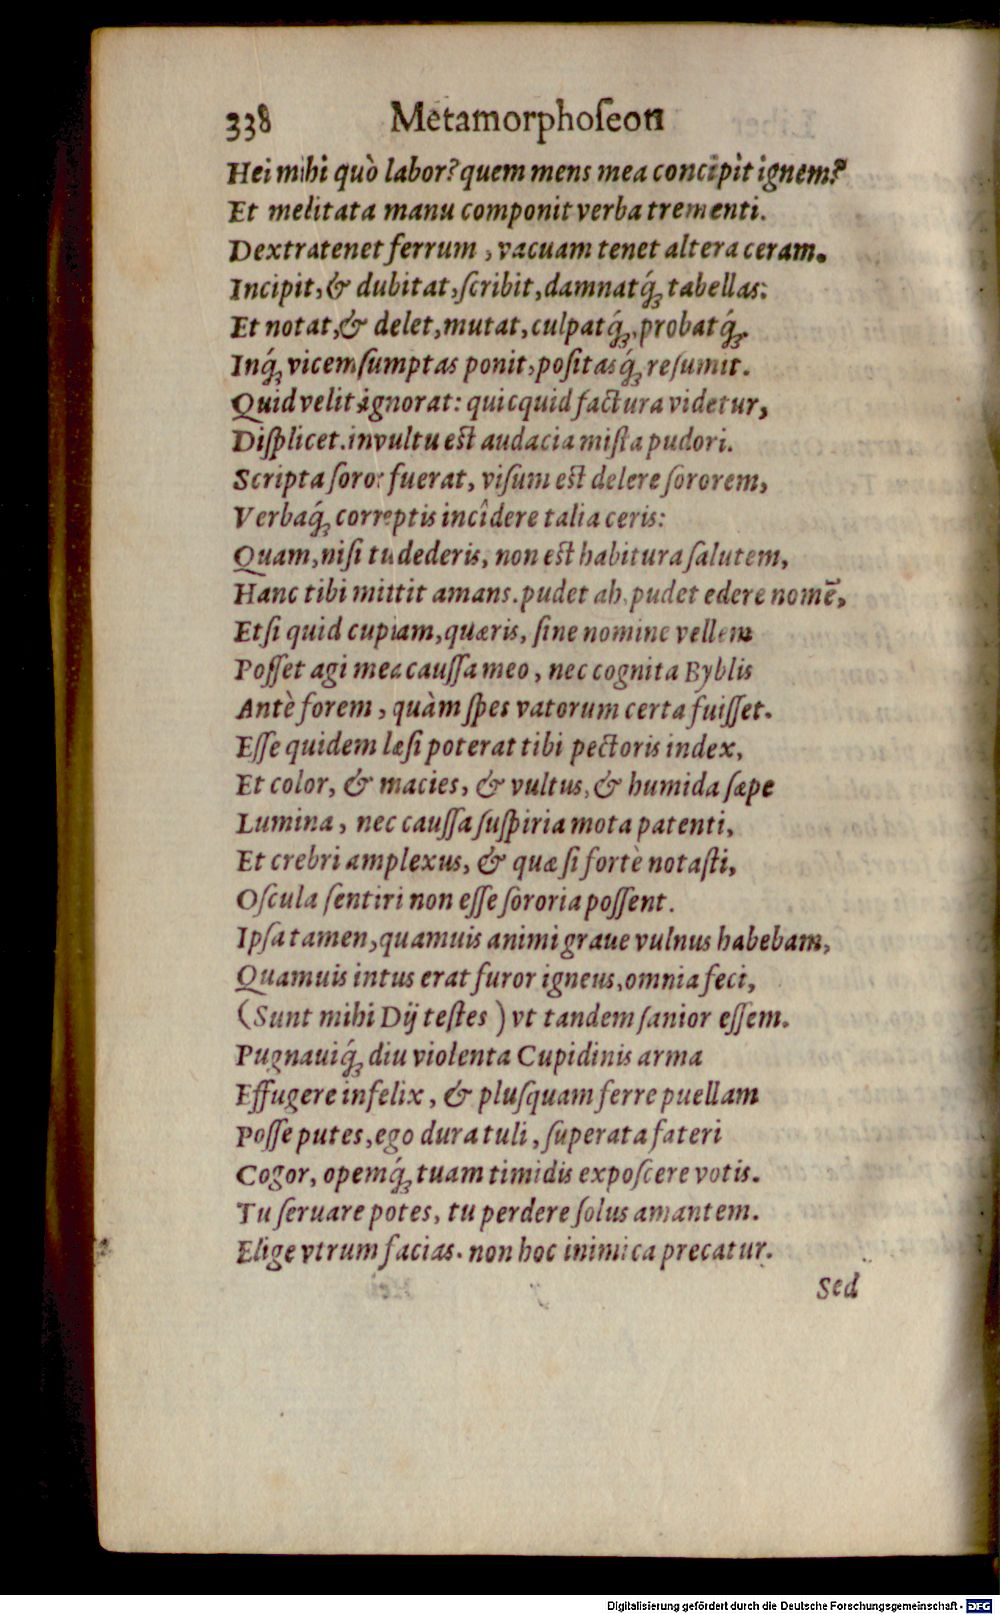 338 Metamorphoſeon
Hei mihi quò labor? quem mens mea concipit ignem?
Et melitata manu componit verba trementi.
Dextra tenet ferrum, vacuam tenet altera ceram.
Incipit, & dubitat, ſcribit, damnatq́; tabellas:
Et notat, & delet, mutat, culpatq́;, probatq́;.
Inq́; vicem ſumptas ponit, poſitasq́; reſumit.
Quid velit ignorat: quicquid factura videtur,
Diſplicet. in vultu est audacia miſta pudori.
Scripta ſoror fuerat, viſum est delere ſororem,
Verbaq́; correptis incîdere talia ceris:
Quam, niſi tu dederis, non est habitura ſalutem,
Hanc tibi mittit amans. pudet ah, pudet edere nomē,
Et ſi quid cupiam, quæris, ſine nomine vellem
Poſſet agi mea cauſſa meo, nec cognita Byblis
Antè forem, quàm ſpes vatorum certa fuiſſet.
Eſſe quidem læſi poterat tibi pectoris index,
Et color, & macies, & vultus, & humida ſæpe
Lumina, nec cauſſa ſuſpiria mota patenti,
Et crebri amplexus, & quæ ſi fortè notaſti,
Oſcula ſentiri non eſſe ſororia poſſent.
Ipſa tamen, quamuis animi graue vulnus habebam,
Quamuis intus erat furor igneus, omnia feci,
(Sunt mihi Dij teſtes) vt tandem ſanior eſſem.
Pugnauiq́; diu violenta Cupidinis arma
Effugere infelix, & pluſquam ferre puellam
Poſſe putes, ego dura tuli, ſuperata fateri
Cogor, opemq́; tuam timidis expoſcere votis.
Tu ſeruare potes, tu perdere ſolus amantem.
Elige vtrum facias. non hoc inimica precatur.
Sed
Digitalisierung gefördert durch die Deutsche Forschungsgemeinschaft - DFG